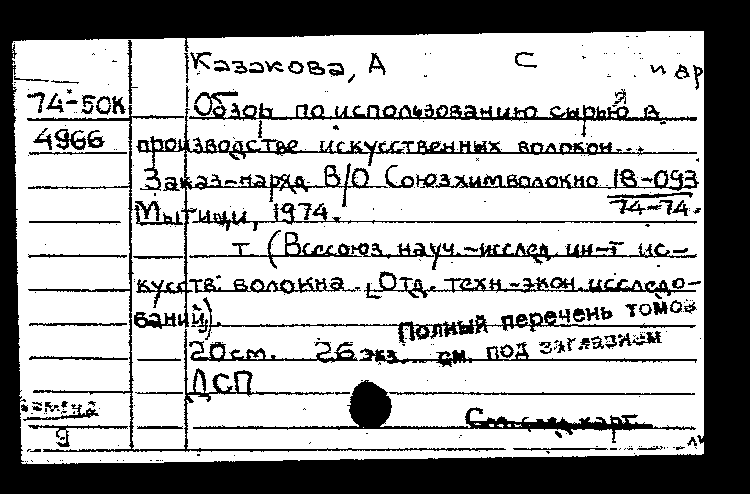 Казакова, А С и др
74-50К Обзор по использованию сырья в
4966 производстве искусственных волокон...
Заказ-наряд В/О Союзхимволокно 18-093
74-74.
Мытищи, 1974.
т (Всесоюз. науч.-исслед. ин-т ис-
кусств. волокна. Отд. техн.-экон. исследо-
ваний).
Полный перечень томов
20 см. 26 экз. см. под заглавием
ДСП
замена
9
См. след. карт.